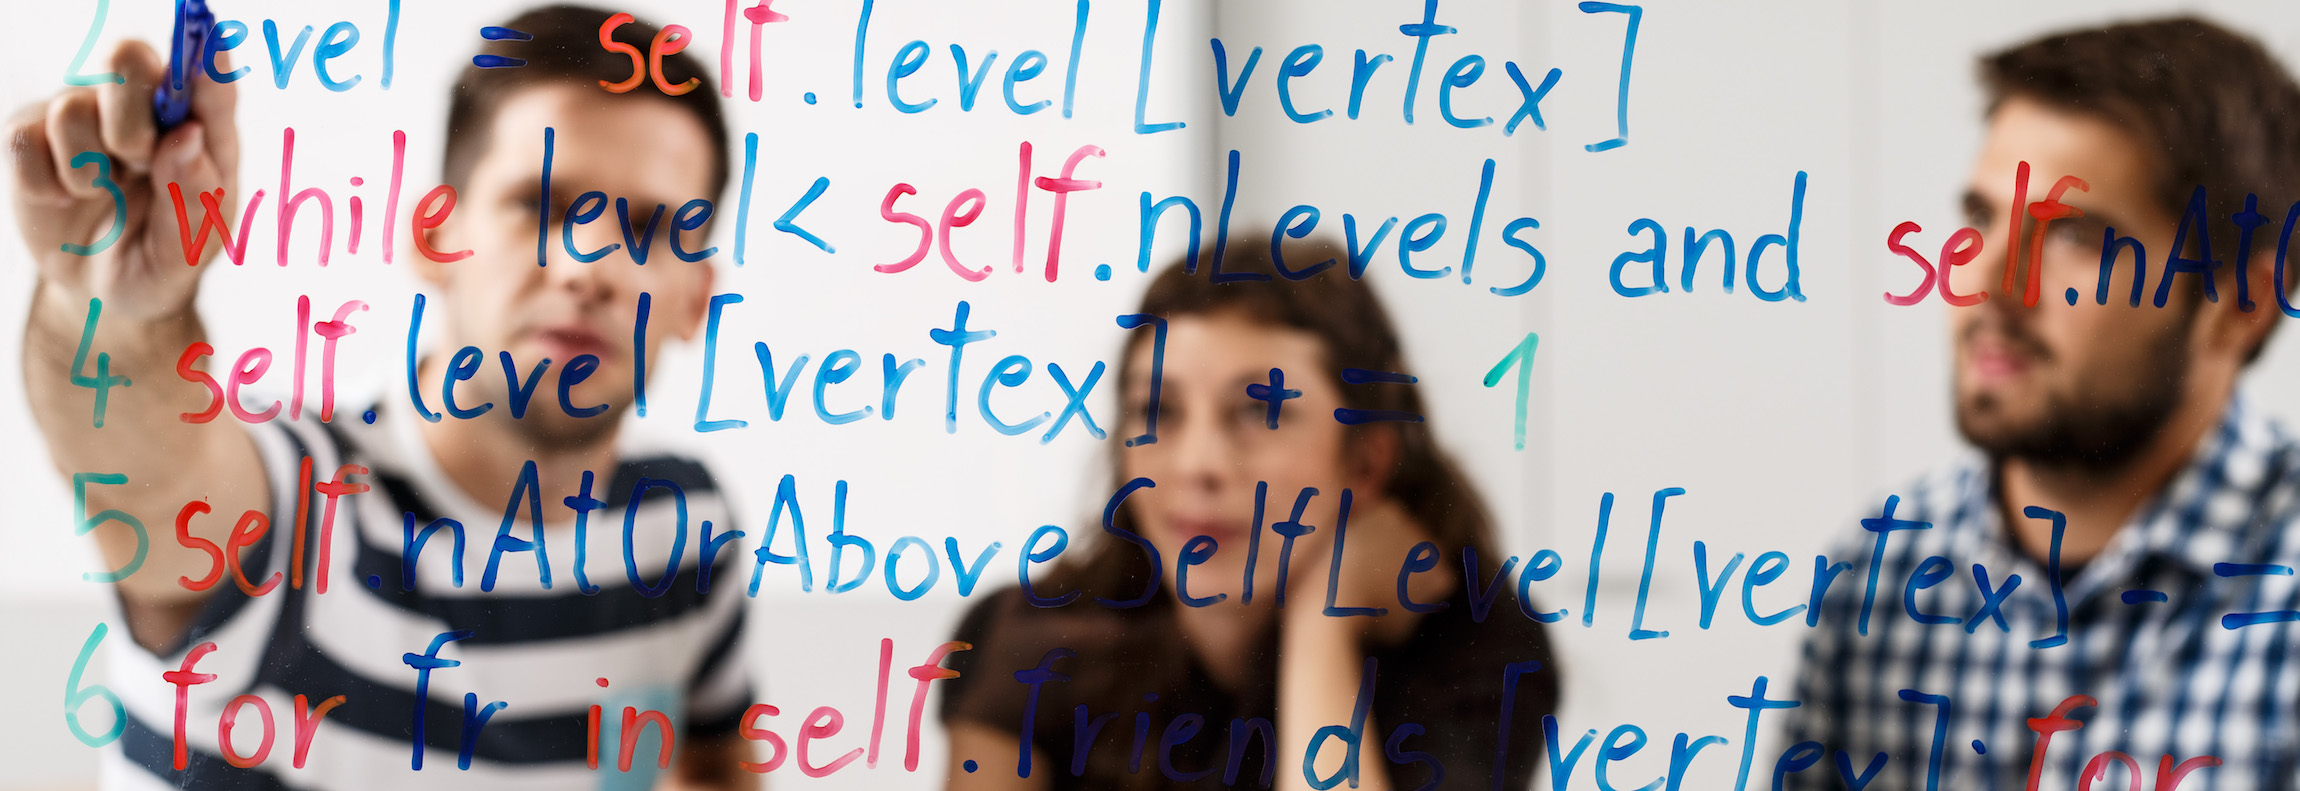 2 level = self.level[vertex]
3 while level < self.nLevels and self.nAtO
4 self.level[vertex] += 1
5 self.nAtOrAboveSelfLevel[vertex] -=
6 for fr in self.friends[vertex]: for